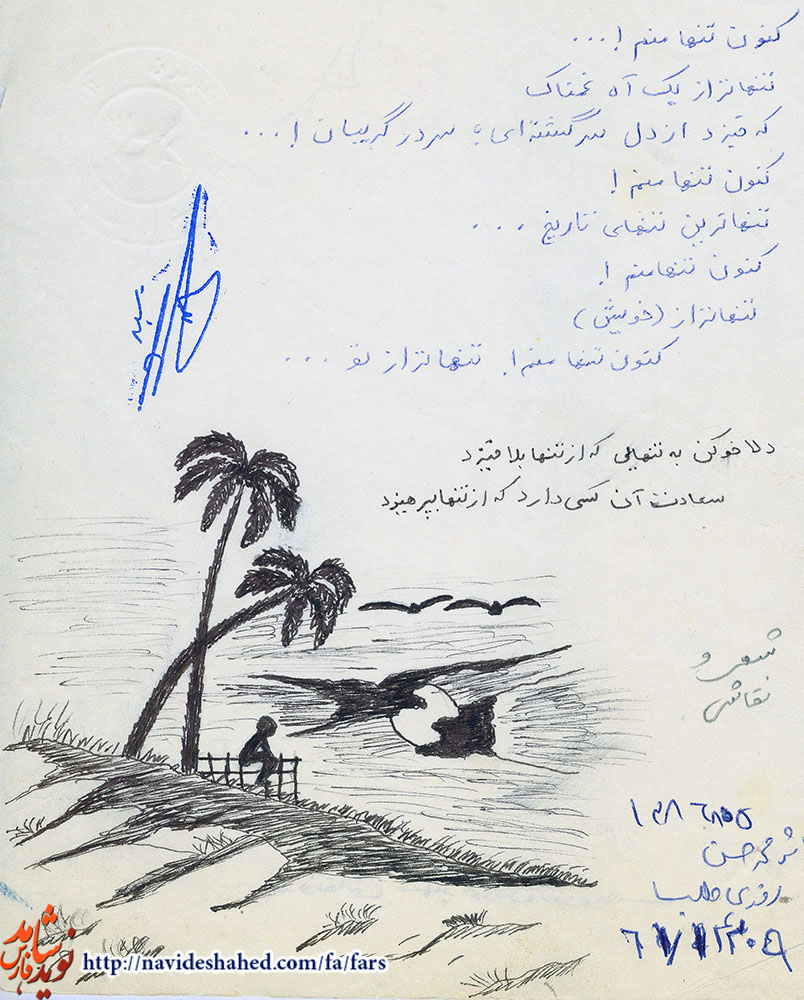 کنون تنها منم !...
تنهاتر از یک آه غمناک
که خیزد از دل سرگشته‌ای سر در گریبان !...
کنون تنها منم !
تنهاترین تنهای تاریخ ...
کنون تنها منم !
تنهاتر از (خویش)
کنون تنها منم ! تنهاتر از تو ...
دلا خو کن به تنهایی که از تنها بلا خیزد
سعادت آن کسی دارد که از تنها بپرهیزد
شعر و
نقاشی
محمد حسن
نوید شاهد
فارس
http://navideshahed.com/fa/fars